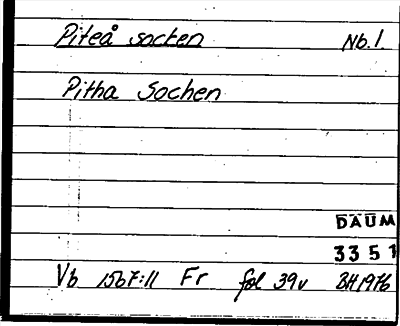 Piteå socken Nb.1.
Pitha Sochen
DAUM
3351
Vb 1567:11 Fr fol 39v BH1976